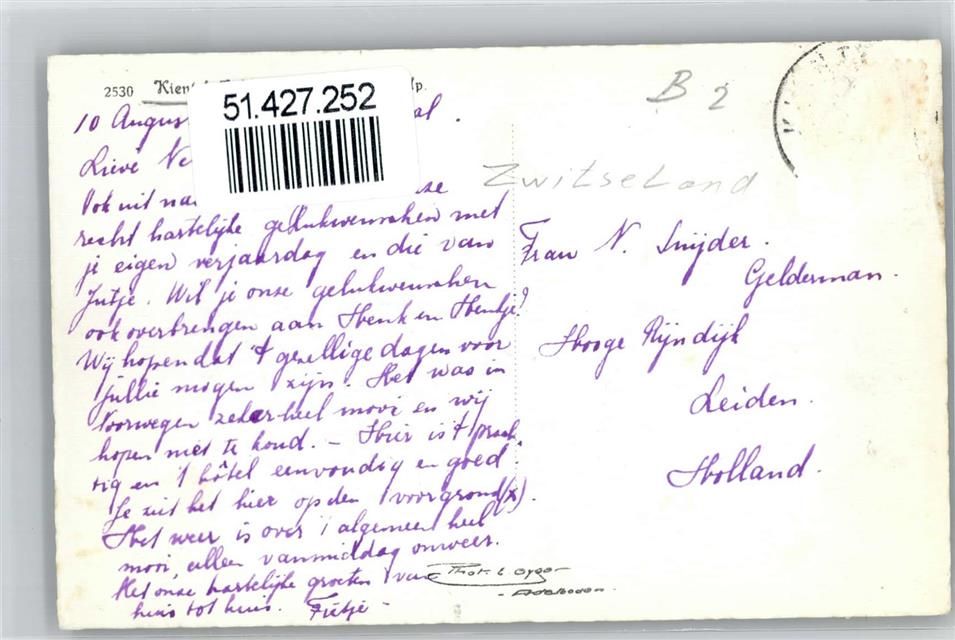 2530
51.427.252
B 2
10 Augus
Lieve Ne
Zwitseland
Ook uit naa
recht hartelijke gelukwenschen met
je eigen verjaardag en die van
Jutje. Wil je onze gelukwenschen
ook overbrengen aan Henk en Hendje?
Wij hopen dat 't gezellige dagen voor
jullie mogen zijn. Het was in
Noorwegen zeker heel mooi en wij
hopen niet te koud. – Hier is 't prach
tig en 't hôtel eenvoudig en goed
Je ziet het hier op den voorgrond (x).
Het weer is over 't algemeen heel
mooi, alleen vanmiddag onweer.
Met onze hartelijke groeten van
huis tot huis. Fietje
Frau N. Snijder.
Gelderman.
Hooge Rijndijk
Leiden.
Holland.
Phot. E. Gyger
Adelboden